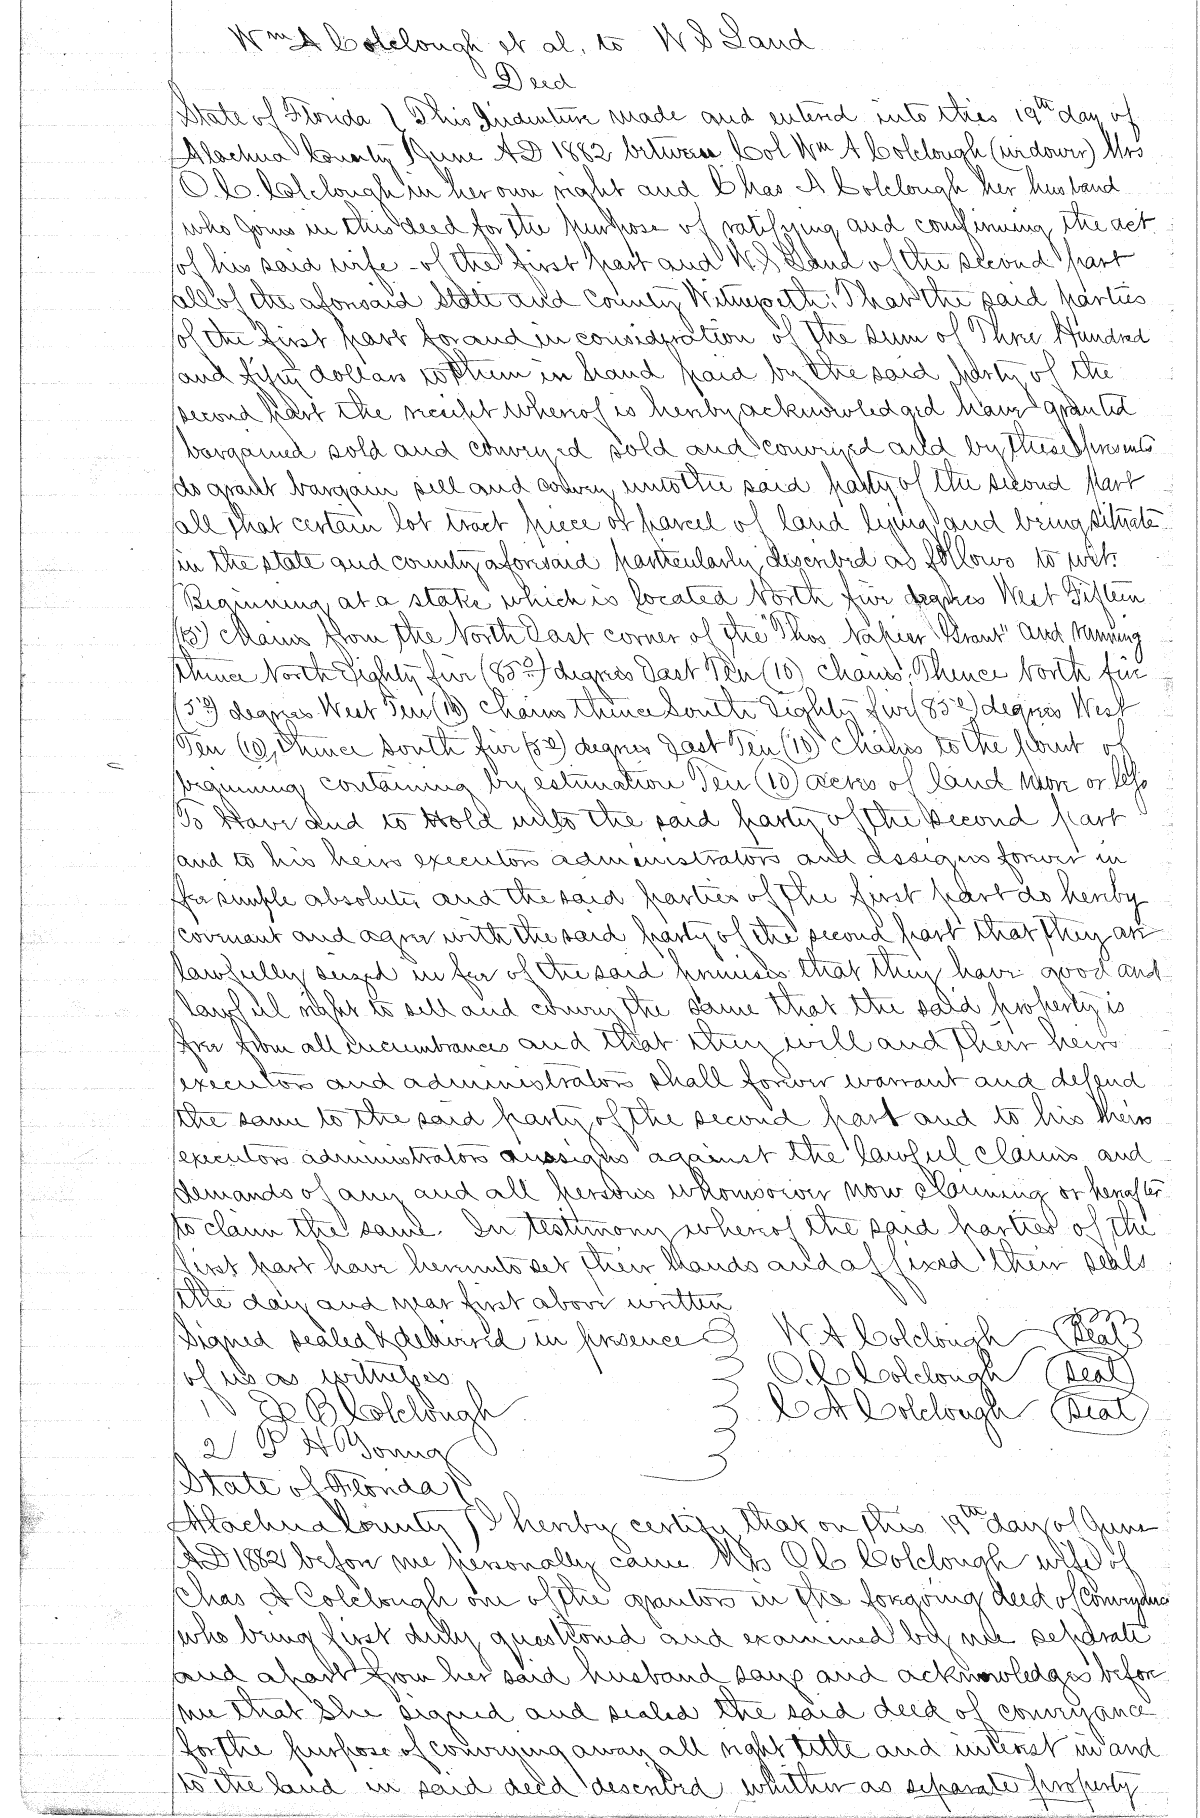 Wm A Colclough et al. to W S Land
Deed
State of Florida } This Indenture made and entered into this 19th day of
Alachua County } June AD 1882 between Col Wm A Colclough (widower) Mrs
O. C. Colclough in her own right and Chas A Colclough her husband
who joins in this deed for the purpose of ratifying and confirming the act
of his said wife - of the first part and W S Land of the second part
all of the aforesaid State and County Witnesseth: That the said parties
of the first part for and in consideration of the sum of Three Hundred
and fifty dollars to them in hand paid by the said party of the
second part the receipt whereof is hereby acknowledged have granted
bargained sold and conveyed sold and conveyed and by these presents
do grant bargain sell and convey unto the said party of the second part
all that certain lot tract piece or parcel of land lying and being situate
in the state and county aforesaid particularly described as follows to wit:
Beginning at a stake which is located North five degrees West Fifteen
(15) chains from the North East corner of the "Thos Napier Grant" and running
thence North Eighty five (85°) degrees East Ten (10) chains; Thence North five
(5°) degrees West Ten (10) chains thence South Eighty five (85°) degrees West
Ten (10), thence South five (5°) degrees East Ten (10) chains to the point of
beginning containing by estimation Ten (10) acres of land more or less
To Have and to Hold unto the said party of the second part
and to his heirs executors administrators and assigns forever in
fee simple absolute, and the said parties of the first part do hereby
covenant and agree with the said party of the second part that they are
lawfully seized in fee of the said premises that they have good and
lawful right to sell and convey the same that the said property is
free from all incumbrances and that they will and their heirs
executors and administrators shall forever warrant and defend
the same to the said party of the second part and to his heirs
executors administrators assigns against the lawful claims and
demands of any and all persons whomsoever now claiming or hereafter
to claim the same. In testimony whereof the said parties of the
first part have hereunto set their hands and affixed their seals
the day and year first above written
Signed sealed & delivered in presence } W A Colclough (Seal)
of us as witnesses } O. C Colclough (Seal)
1 B Colclough } C A Colclough (Seal)
2 P H Young
State of Florida }
Alachua County } I hereby certify that on this 19th day of June
AD 1882 before me personally came Mrs O C Colclough wife of
Chas A Colclough one of the grantors in the foregoing deed of Conveyance
who being first duly questioned and examined by me separate
and apart from her said husband says and acknowledges before
me that she signed and sealed the said deed of conveyance
for the purpose of conveying away all right title and interest in and
to the land in said deed described whether as separate property